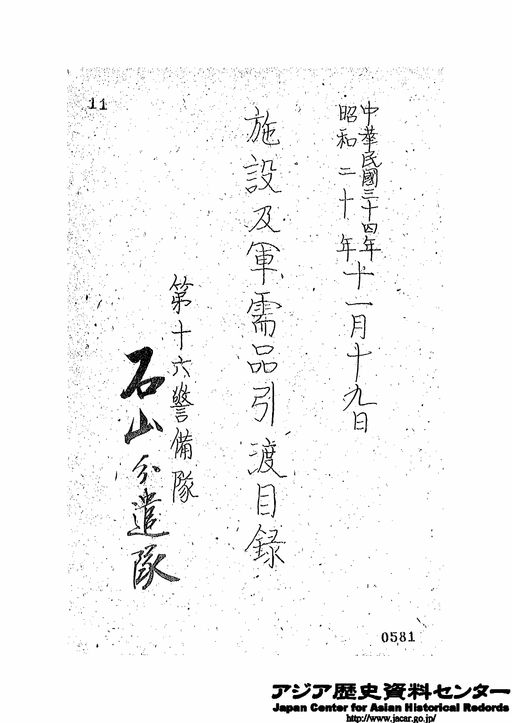 11
中華民國三十四年
昭和二十年
十一月十九日
施設及軍需品引渡目録
第十六警備隊
石山分遣隊
0581
アジア歴史資料センター
Japan Center for Asian Historical Redords
http://www.jacar.go.jp/